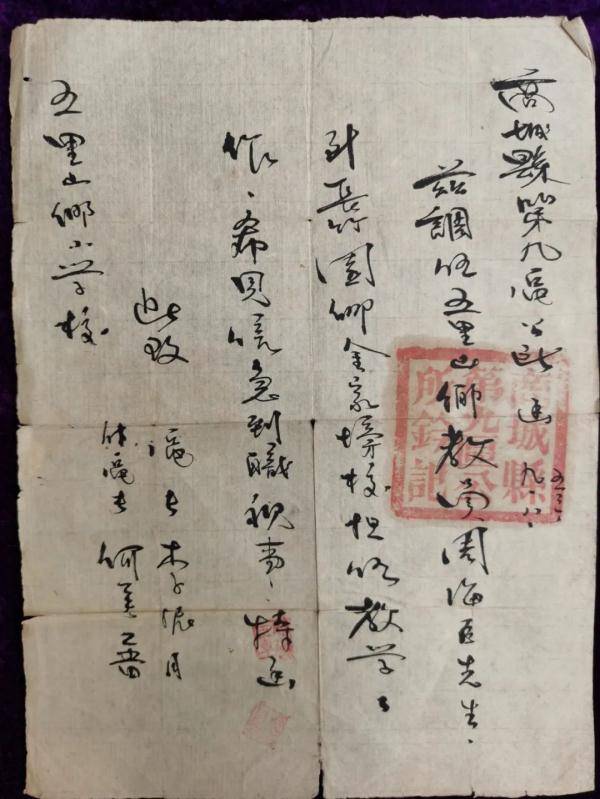 商城縣第九區公所函 五三、九、八、
茲調伍五里山鄉教員周海臣先生、
到長竹園鄉金家塝校担任教学工
作、希見信急到職視事、特函
此致
五里山鄉小学校
區長 李
付區長 何
商城縣第九區公所鈐記